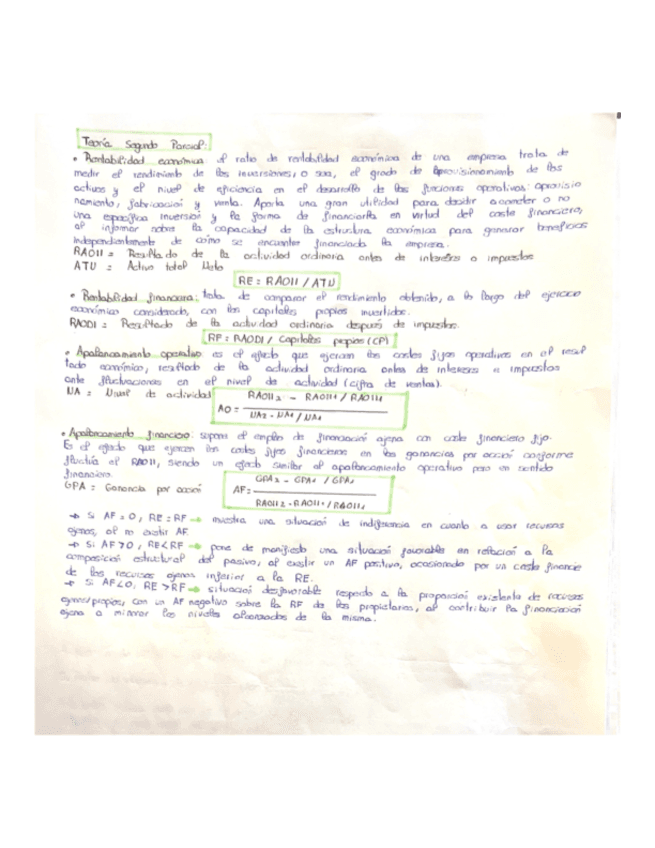 Teoría Segundo Parcial:
• Rentabilidad económica: el ratio de rentabilidad económica de una empresa trata de
medir el rendimiento de las inversiones, o sea, el grado de aprovisionamiento de los
activos y el nivel de eficiencia en el desarrollo de las funciones operativas: aprovisio
namiento, fabricación y venta. Aporta una gran utilidad para decidir acometer o no
una específica inversión y la forma de financiarla en virtud del coste financiero,
al informar sobre la capacidad de la estructura económica para generar beneficios
independientemente de cómo se encuentre financiada la empresa.
RAOII = Resultado de la actividad ordinaria antes de intereses e impuestos
ATN = Activo total Neto
RE = RAOII / ATN
• Rentabilidad financiera: trata de comparar el rendimiento obtenido, a lo largo del ejercicio
económico considerado, con los capitales propios invertidos.
RAODI = Resultado de la actividad ordinaria después de impuestos.
RF = RAODI / Capitales propios (CP)
• Apalancamiento operativo es el efecto que ejercen los costes fijos operativos en el resul
tado económico, resultado de la actividad ordinaria antes de intereses e impuestos
ante fluctuaciones en el nivel de actividad (cifra de ventas).
NA = Nivel de actividad
RAOII2 - RAOII1 / RAOII1
AO =
NA2 - NA1 / NA1
• Apalancamiento financiero: supone el empleo de financiación ajena con coste financiero fijo.
Es el efecto que ejercen los costes fijos financieros en las ganancias por acción conforme
fluctúa el RAOII, siendo un efecto similar al apalancamiento operativo pero en sentido
financiero.
GPA = Ganancia por acción
GPA2 - GPA1 / GPA1
AF =
RAOII2 - RAOII1 / RAOII1
→ Si AF = 0, RE = RF → muestra una situación de indiferencia en cuanto a usar recursos
ajenos, al no existir AF.
→ Si AF > 0, RE < RF → pone de manifiesto una situación favorable en relación a la
composición estructural del pasivo, al existir un AF positivo, ocasionado por un coste financie
de los recursos ajenos inferior a la RE.
→ Si AF < 0, RE > RF → situación desfavorable respecto a la proporción existente de recursos
ajenos/propios, con un AF negativo sobre la RF de los propietarios, al contribuir la financiación
ajena a minorar los niveles alcanzados de la misma.